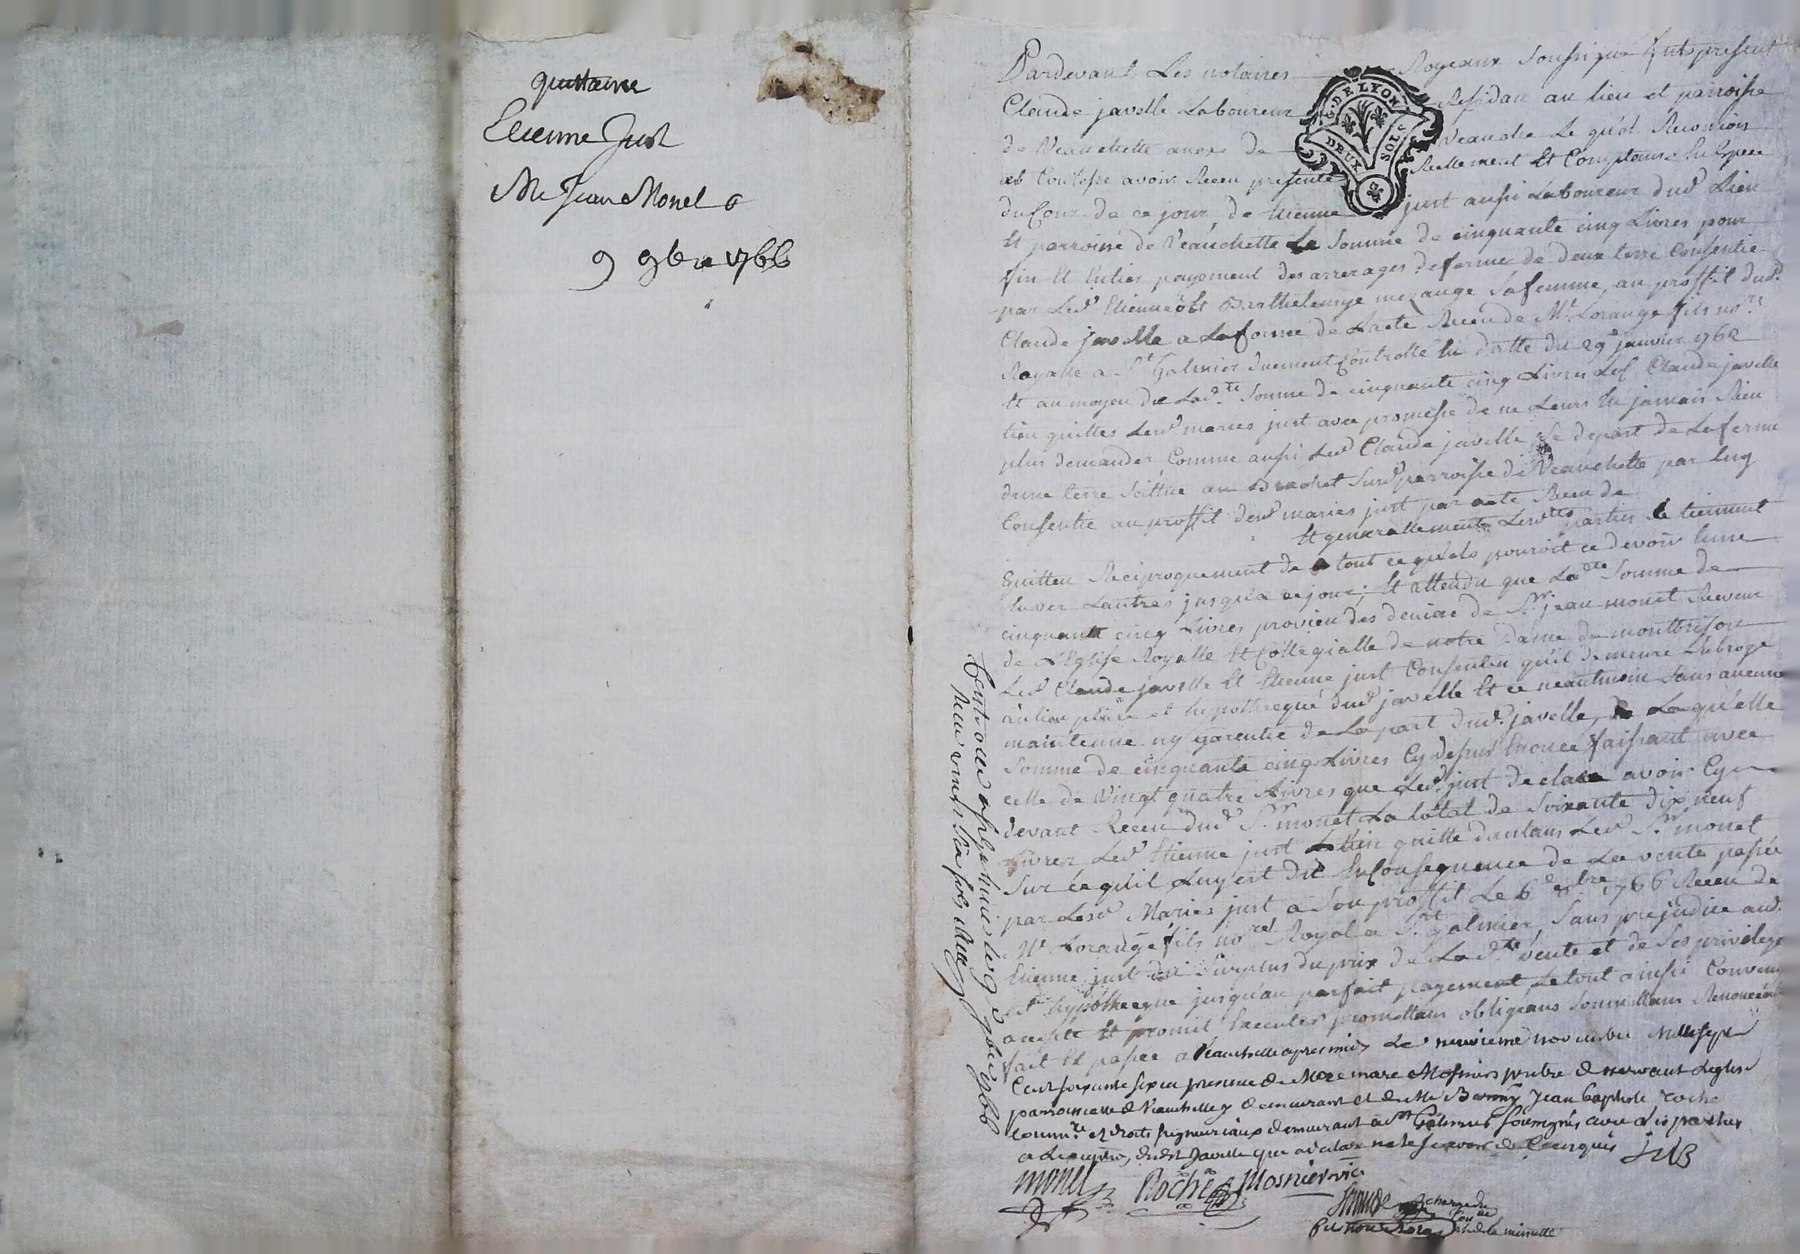 quittance
Etienne Just
Me Jean Monet
9 9bre 1766
Pardevant Les notaires Royeaux Soussignés fut present
G. DE LYON
DEUX SOLS
Claude javelle Laboureur Residant au lieu et parroisse
de Veauchette anexe de Veauche Le quel Reconnoit
et Confesse avoir Receu presente Reellement Et Comptent
du Cour de ce jour de Etienne just aussi Laboureur dud. Lieu
Et parroisse de Veauchette La Somme de cinquante cinq Livres pour
fin Et Entier payement des arrerages de ferme de deux terre Consentie
par Led. Etienne Et Barthelemye mezange Sa femme, au proffit dud.
Claude javelle a La forme de L'acte Receu de Me. Lorange fils nore.
Royalle a St. Galmier duement Controllé En datte du 29 janvier 1762
Et au moyen de Lad.te Somme de cinquante cinq Livres Led. Claude javelle
tien quittes Lesd. mariés just avec promesse de ne Leurs En jamais Rien
plus demander Comme aussi Led. Claude javelle Se depart de La ferme
dune terre Scittuée au Brachet Surd. parroisse de Veauchette par Luy
Consentie au proffit desd. mariés just par acte Receu de
Et generallement Lesd.ttes parties Se tiennent
quittes Reciproquement de tout ce quels pouroit ce devoir Lune
Enver Lautres jusqu'a ce jour; Et attendu que La dtte Somme de
cinquante cinq Livres provien des deniers de Sr. jean monet Receveur
de L'Eglise Royalle Et Collegialle de notre Dame de montbrison
Led. Claude javelle Et Etienne just Consenten qu'il demeure Subrogé
au lieu place et hypotheque dud. javelle Et ce neantmoin Sans aucune
maintenue ny garentie de La part dud. javelle, La qu'elle
Somme de cinquante cinq Livres Cy dessus Enoncée faissant avec
celle de Vingt quatre Livres que Led. just declare avoir Cy
devant Receu dud. Sr. monet La total de Soixante dix neuf
Livres Led. Etienne just En tien quitte dautans Led. Sr. monet
Sur ce qu'il Luy est Dû En Consequence de La vente passée
par Lesd. Mariés just a Son proffit Le 6e. 9bre 1766 Receu de
Me Lorange fils nore. Royal a St. galmier, Sans prejudice aud.
Etienne just du Surplus du prix de Lad.te vente et de Ses privilege
et hypotheque jusqu'au parfait payement, Le tout ainsi Convenu
accepté Et promit Executer promettans obligeans Soumettans Renonceans
fait Et passée a Veauchette apres midy Le neuvieme novembre Mil Sept
Cent soixante six en presence de Mre marc Mosnier pretre desservant Leglise
parroissialle de Veauchette y demeurant et de Me Jean Baptiste roche
Commre. et droits seigneuriaux demeurant a St Galmier soussignés avec Les parties
Just
monet Roche Mosnier
Controlé a St Galmier Le 9 9bre 1766